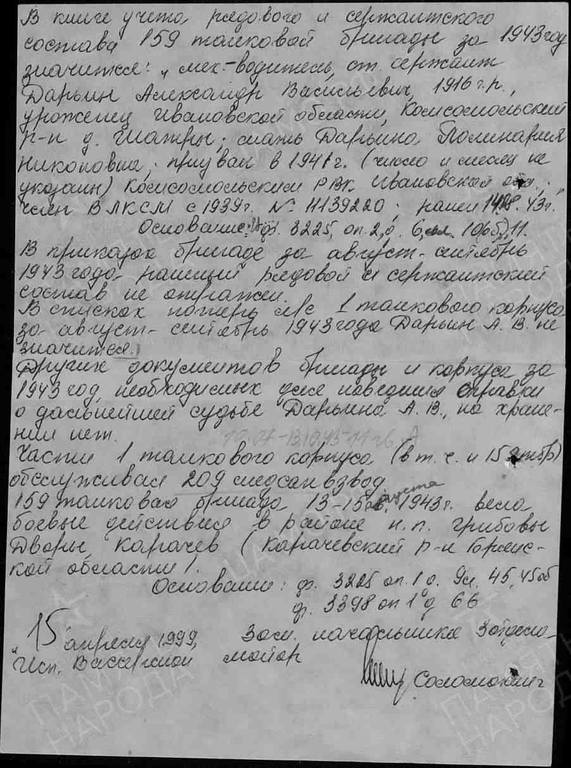 В книге учета рядового и сержантского
состава 159 танковой бригады за 1943 год
значится: „мех-водитель, ст. сержант
Дарьин Александр Васильевич, 1916 г.р.,
уроженец Ивановской области, Комсомольский
р-н д. Шатры; мать Дарьина Полинария
Никоновна; призван в 1941 г. (число и месяц не
указан) Комсомольским РВК Ивановской обл.;
член ВЛКСМ с 1939г. № 4139220; 43г.
Основание: ф. 3225, оп. 2, д. 6, 11.
В приказах бригаде за август-сентябрь
1943 года рядовой и сержантский
состав не отражен.
В списках потерь л/с 1 танкового корпуса
за август-сентябрь 1943 года Дарьин А. В. не
значится.
Других документов бригады и корпуса за
1943 год, необходимых для наведения справки
о дальнейшей судьбе Дарьина А. В., на хране-
нии нет.
Части 1 танкового корпуса (в т. ч. и 159 тбр)
обслуживал 209 медсанвзвод.
159 танковая бригада 13-15 августа 1943 г. вела
боевые действия в районе н. п. Грибовы
Дворы, Карачев (Карачевский р-н Орловс-
кой области).
Основание: ф. 3225 оп. 1 д. 9 45, 45об
ф. 3398 оп 1 д 66
15 апреля 1999, Зам. начальника 3 отдела
Исп. майор